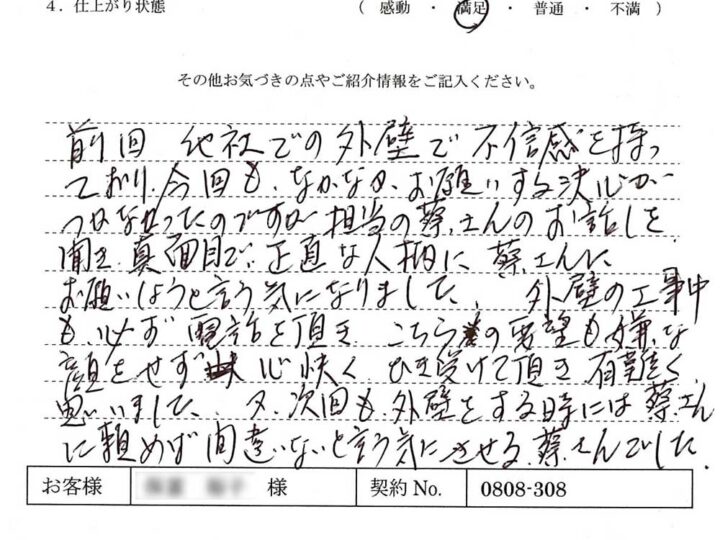 4. 仕上がり状態 ( 感動 ・ 満足 ・ 普通 ・ 不満 )
その他お気づきの点やご紹介情報をご記入ください。
前回 他社での外壁で不信感を持っ
ており、今回も、なかなか、お願いする決心が
つかなかったのですが担当の蔡さんのお話しを
聞き真面目で、正直な人柄に蔡さんに
お願いしようと言う気になりました、外壁の工事中
も、必ず電話を頂き、こちらの要望も嫌な
顔をせず 心快く ひき受けて頂き有難く
思いました、又、次回も、外壁をする時には蔡さん
に頼めず間違いないと言う気にさせる、蔡さんでした。
お客様 様 契約No. 0808-308